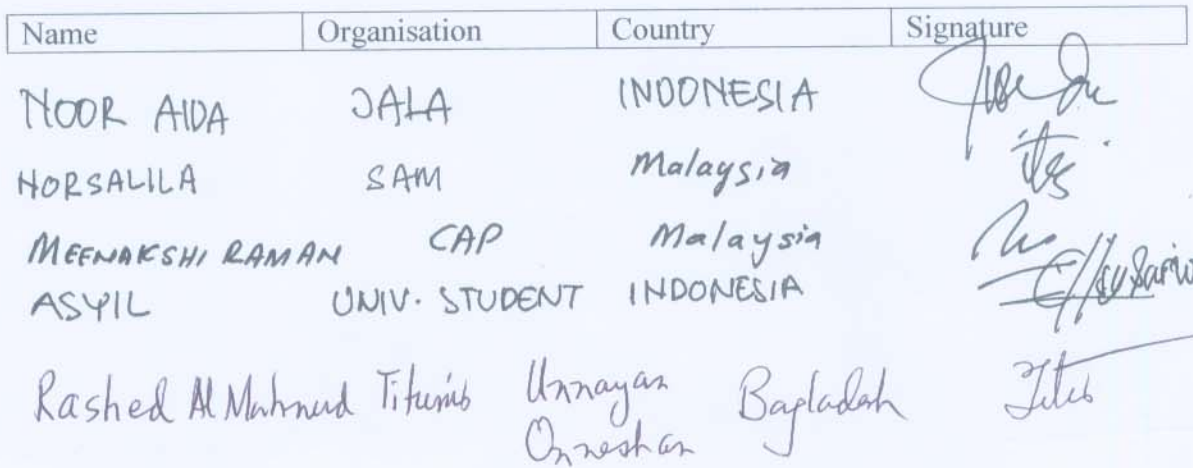 Name Organisation Country Signature
NOOR AIDA JALA INDONESIA
NORSALILA SAM Malaysia
MEENAKSHI RAMAN CAP Malaysia
ASYIL UNIV. STUDENT INDONESIA
Rashed Al Mahmud Titumir Unnayan Bagladesh
Onneshan